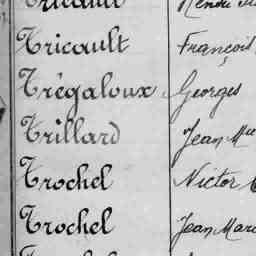 Tricault François
Trégaloux Georges
Trillard Jean Mie
Trochel Victor
Trochel Jean Marie